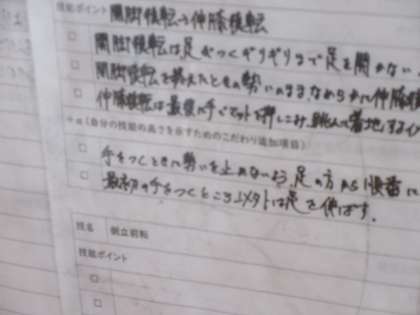 技能ポイント 開脚後転→伸膝後転
□ 開脚後転は足がつくギリギリまで足を開かない。
□ 開脚後転を終えたときの勢いのままなめらかに伸膝後
□ 伸膝後転は最後に手でマットを押しこみ、
+α(自分の技能の高さを示すためのこだわり追加項目)
□ 手をつくときに勢いを止めないよう、足の方から順番に
□ 最初の手をつくところ以外は足を伸ばす。
技名 倒立前転
技能ポイント
□
□